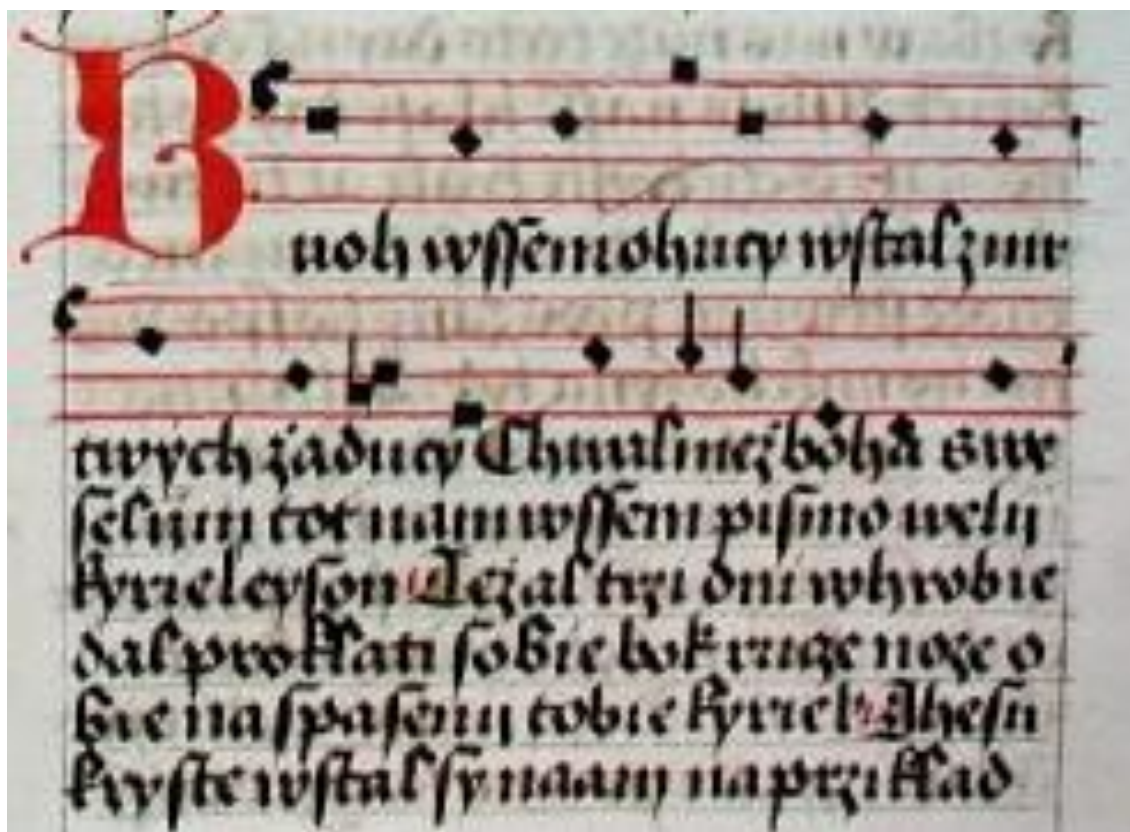 Buoh wssemohucy wstal zmr
twych zaducy Chwalmez boha s we
selim tot nam wssem pismo weli
kyrieleyson Lezal trzi dni whrobie
dal proklati sobie bok ruce noze o
bie na spaseni tobie kyriel Ihesu
kryste wstal sy naam na przi klad